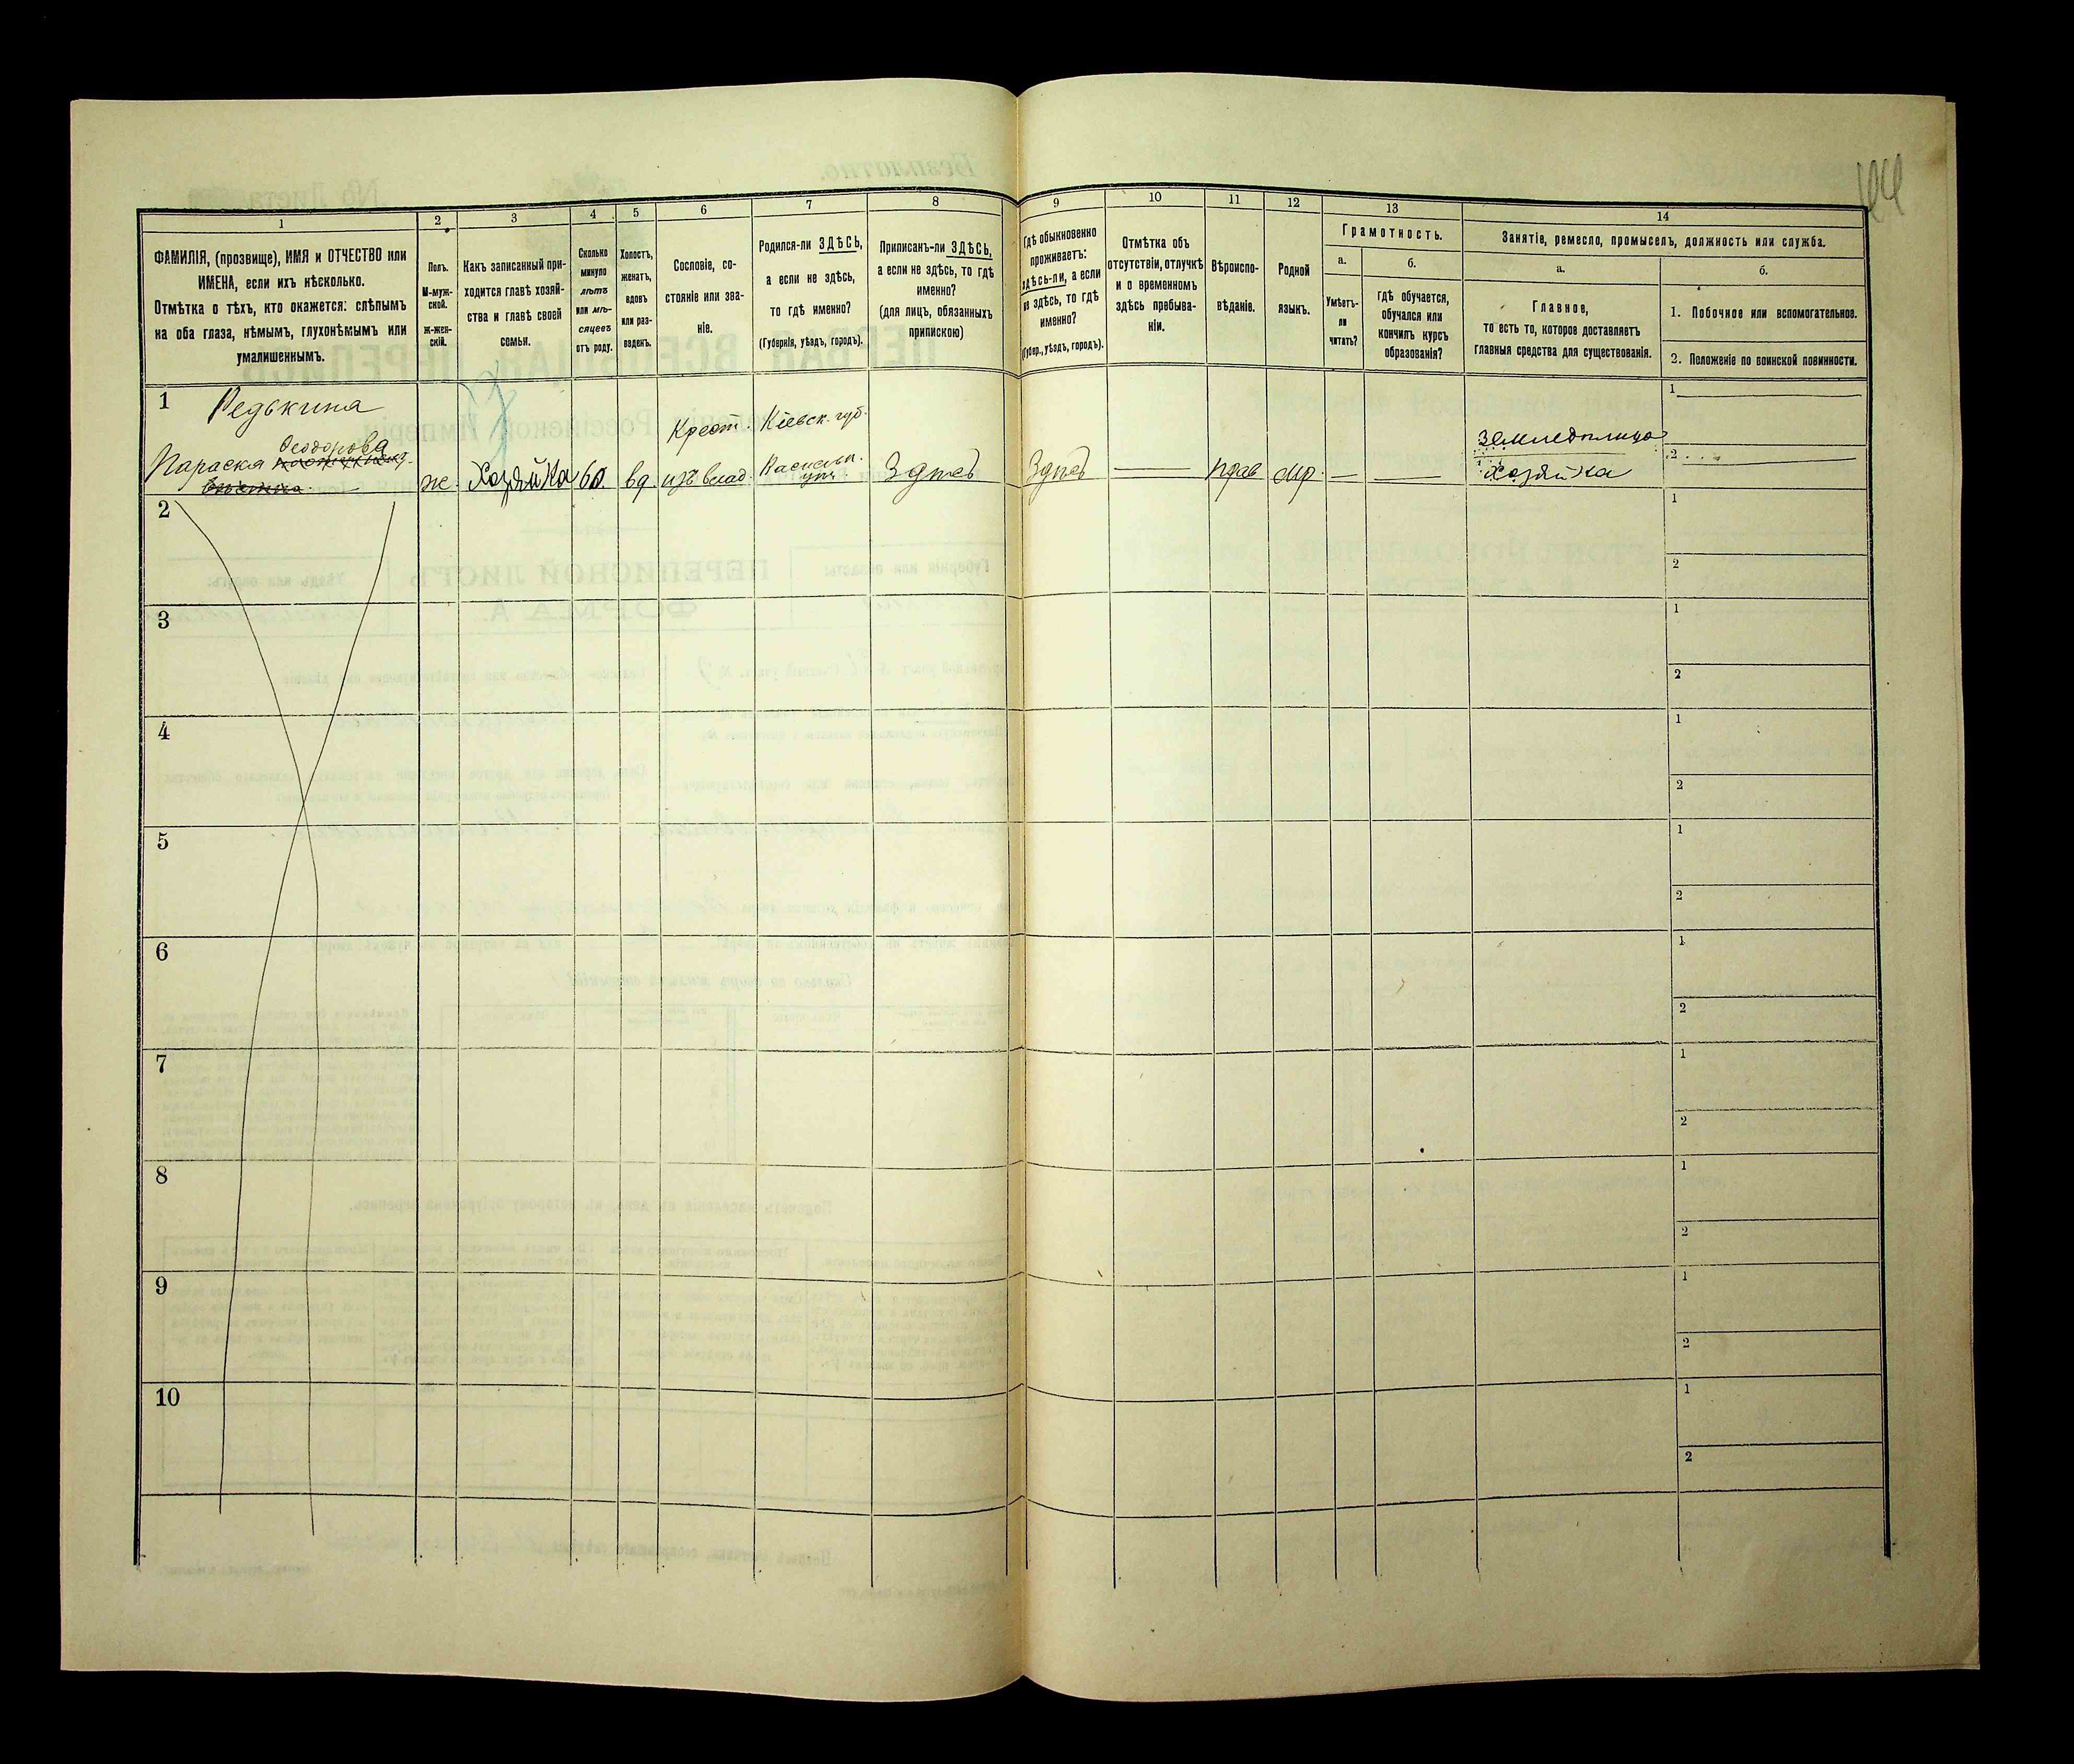 194
1
ФАМИЛІЯ, (прозвище), ИМЯ и ОТЧЕСТВО или
ИМЕНА, если ихъ нѣсколько.
Отмѣтка о тѣхъ, кто окажется: слѣпымъ
на оба глаза, нѣмымъ, глухонѣмымъ или
умалишеннымъ.
2
Полъ.
М-муж-
ской.
ж-жен-
скій.
3
Какъ записанный при-
ходится главѣ хозяй-
ства и главѣ своей
семьи.
4
Сколько
минуло
лѣтъ
или мѣ-
сяцевъ
отъ роду.
5
Холостъ,
женатъ,
вдовъ
или раз-
веденъ.
6
Сословіе, со-
стояніе или зва-
ніе.
7
Родился-ли ЗДѢСЬ,
а если не здѣсь,
то гдѣ именно?
(Губернія, уѣздъ, городъ).
8
Приписанъ-ли ЗДѢСЬ,
а если не здѣсь, то гдѣ
именно?
(для лицъ, обязанныхъ
припискою)
9
Гдѣ обыкновенно
проживаетъ:
здѣсь-ли, а если
не здѣсь, то гдѣ
именно?
(Губер., уѣздъ, городъ).
10
Отмѣтка объ
отсутствіи, отлучкѣ
и о временномъ
здѣсь пребыва-
ніи.
11
Вѣроиспо-
вѣданіе.
12
Родной
языкъ.
13
Грамотность.
а.
Умѣетъ-
ли
читать?
б.
гдѣ обучается,
обучался или
кончилъ курсъ
образованія?
14
Занятіе, ремесло, промыселъ, должность или служба.
а.
Главное,
то есть то, которое доставляетъ
главныя средства для существованія.
б.
1. Побочное или вспомогательное.
2. Положеніе по воинской повинности.
1
Редькина
Параска Феодорова
ж.
Хозяйка
60.
вд.
Крест.
изъ влад.
Кіевск. губ.
Здѣсь
Здѣсь
—
прав
мр.
—
—
Земледѣлица
хозяйка
1
2
2
1
2
3
1
2
4
1
2
5
1
2
6
1
2
7
1
2
8
1
2
9
1
2
10
1
2